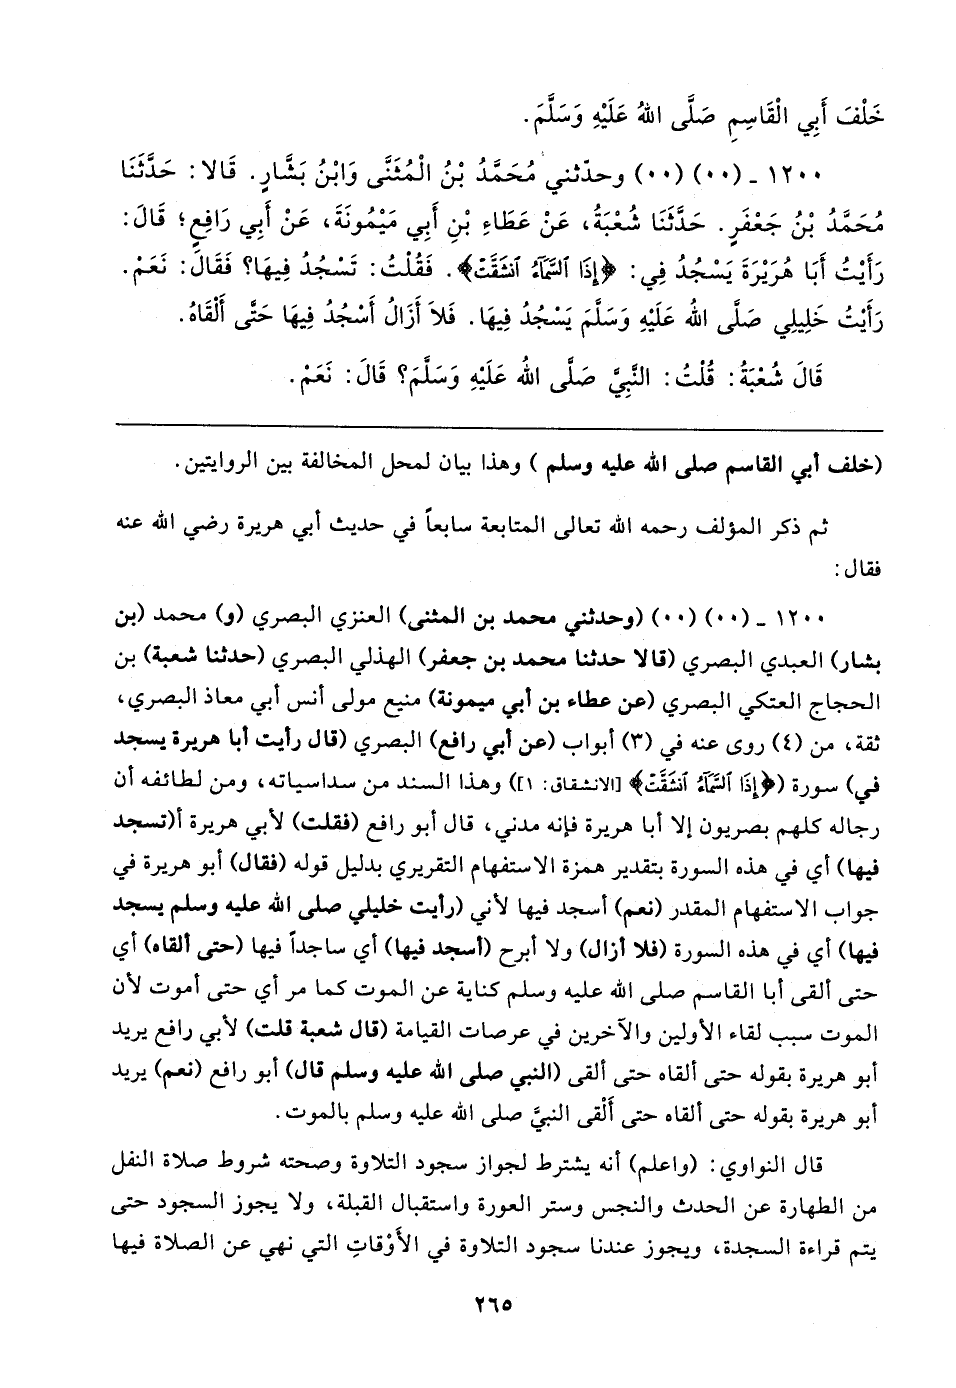 خَلْفَ أَبِي الْقَاسِمِ صَلَّى اللهُ عَلَيْهِ وَسَلَّمَ.
١٢٠٠ ـ (٠٠) (٠٠) وحدّثني مُحَمَّدُ بْنُ الْمُثَنَّى وَابْنُ بَشَّارٍ. قَالا: حَدَّثَنَا
مُحَمَّدُ بْنُ جَعْفَرٍ. حَدَّثَنَا شُعْبَةُ، عَنْ عَطَاءِ بْنِ أَبِي مَيْمُونَةَ، عَنْ أَبِي رَافِعٍ؛ قَالَ:
رَأَيْتُ أَبَا هُرَيْرَةَ يَسْجُدُ فِي: ﴿إِذَا ٱلسَّمَآءُ ٱنشَقَّتْ﴾. فَقُلْتُ: تَسْجُدُ فِيهَا؟ فَقَالَ: نَعَمْ.
رَأَيْتُ خَلِيلِي صَلَّى اللهُ عَلَيْهِ وَسَلَّمَ يَسْجُدُ فِيهَا. فَلاَ أَزَالُ أَسْجُدُ فِيهَا حَتَّى أَلْقَاهُ.
قَالَ شُعْبَةُ: قُلْتُ: النَّبِيَّ صَلَّى اللهُ عَلَيْهِ وَسَلَّمَ؟ قَالَ: نَعَمْ.
(خلف أبي القاسم صلى الله عليه وسلم ) وهذا بيان لمحل المخالفة بين الروايتين.
ثم ذكر المؤلف رحمه الله تعالى المتابعة سابعاً في حديث أبي هريرة رضي الله عنه
فقال:
١٢٠٠ ـ (٠٠) (٠٠) (وحدثني محمد بن المثنى) العنزي البصري (و) محمد (بن
بشار) العبدي البصري (قالا حدثنا محمد بن جعفر) الهذلي البصري (حدثنا شعبة) بن
الحجاج العتكي البصري (عن عطاء بن أبي ميمونة) منيع مولى أنس أبي معاذ البصري،
ثقة، من (٤) روى عنه في (٣) أبواب (عن أبي رافع) البصري (قال رأيت أبا هريرة يسجد
في) سورة (﴿إِذَا ٱلسَّمَآءُ ٱنشَقَّتْ﴾ [الانشقاق: ١]) وهذا السند من سداسياته، ومن لطائفه أن
رجاله كلهم بصريون إلا أبا هريرة فإنه مدني، قال أبو رافع (فقلت) لأبي هريرة أ(تسجد
فيها) أي في هذه السورة بتقدير همزة الاستفهام التقريري بدليل قوله (فقال) أبو هريرة في
جواب الاستفهام المقدر (نعم) أسجد فيها لأني (رأيت خليلي صلى الله عليه وسلم يسجد
فيها) أي في هذه السورة (فلا أزال) ولا أبرح (أسجد فيها) أي ساجداً فيها (حتى ألقاه) أي
حتى ألقى أبا القاسم صلى الله عليه وسلم كناية عن الموت كما مر أي حتى أموت لأن
الموت سبب لقاء الأولين والآخرين في عرصات القيامة (قال شعبة قلت) لأبي رافع يريد
أبو هريرة بقوله حتى ألقاه حتى ألقى (النبي صلى الله عليه وسلم قال) أبو رافع (نعم) يريد
أبو هريرة بقوله حتى ألقاه حتى أَلْقى النبيَّ صلى الله عليه وسلم بالموت.
قال النواوي: (واعلم) أنه يشترط لجواز سجود التلاوة وصحته شروط صلاة النفل
من الطهارة عن الحدث والنجس وستر العورة واستقبال القبلة، ولا يجوز السجود حتى
يتم قراءة السجدة، ويجوز عندنا سجود التلاوة في الأَوْقاتِ التي نهي عن الصلاة فيها
٢٦٥